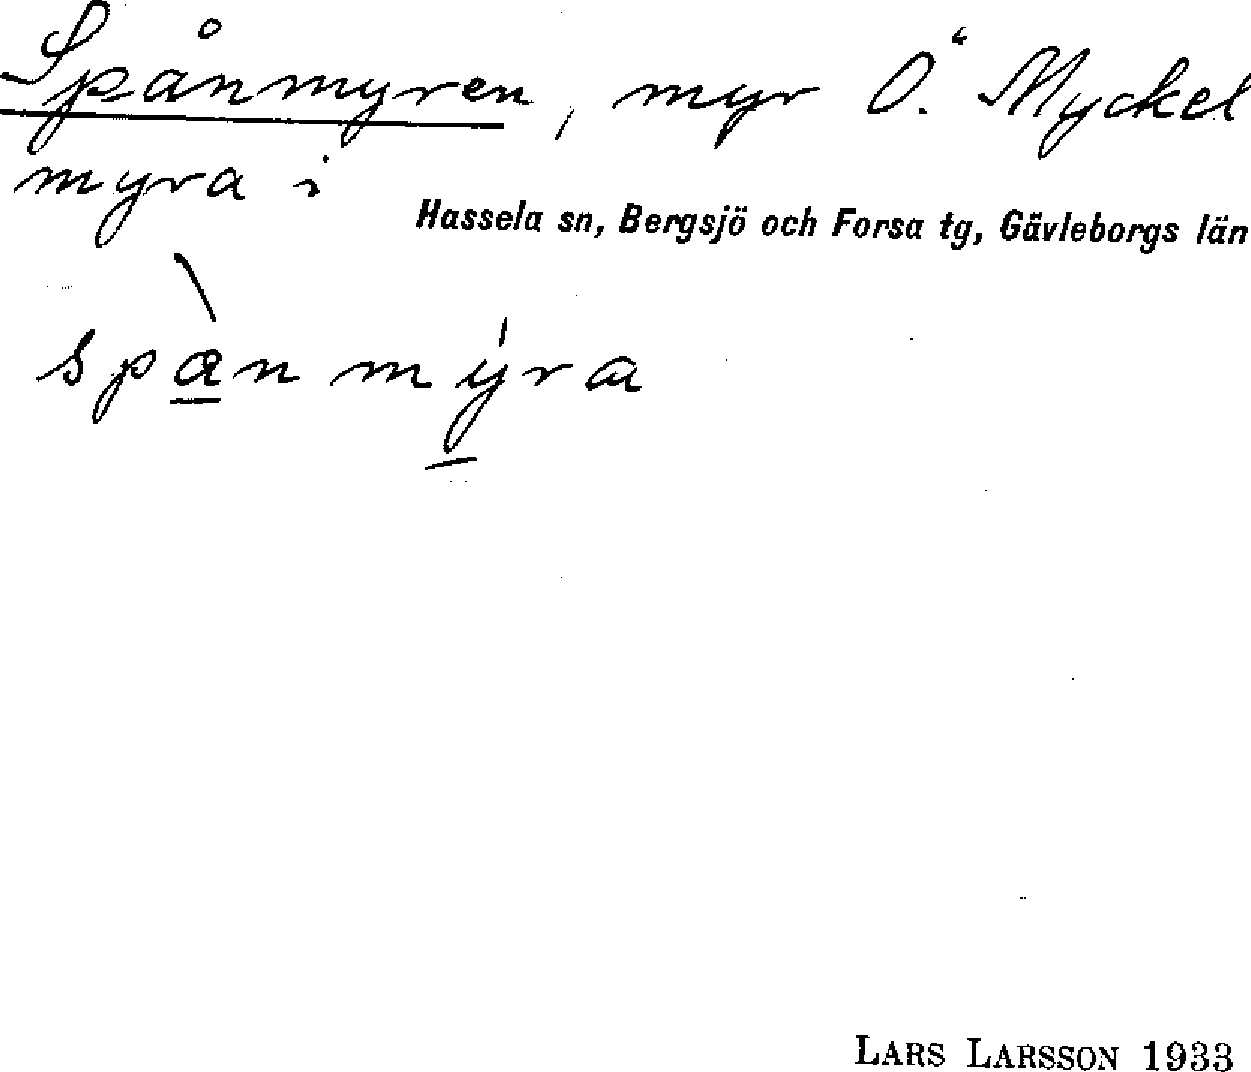 Spånmyren, myr Ö. Myckel
myra i
Hassela sn, Bergsjö och Forsa tg, Gävleborgs län
spànmýra
LARS LARSSON 1933